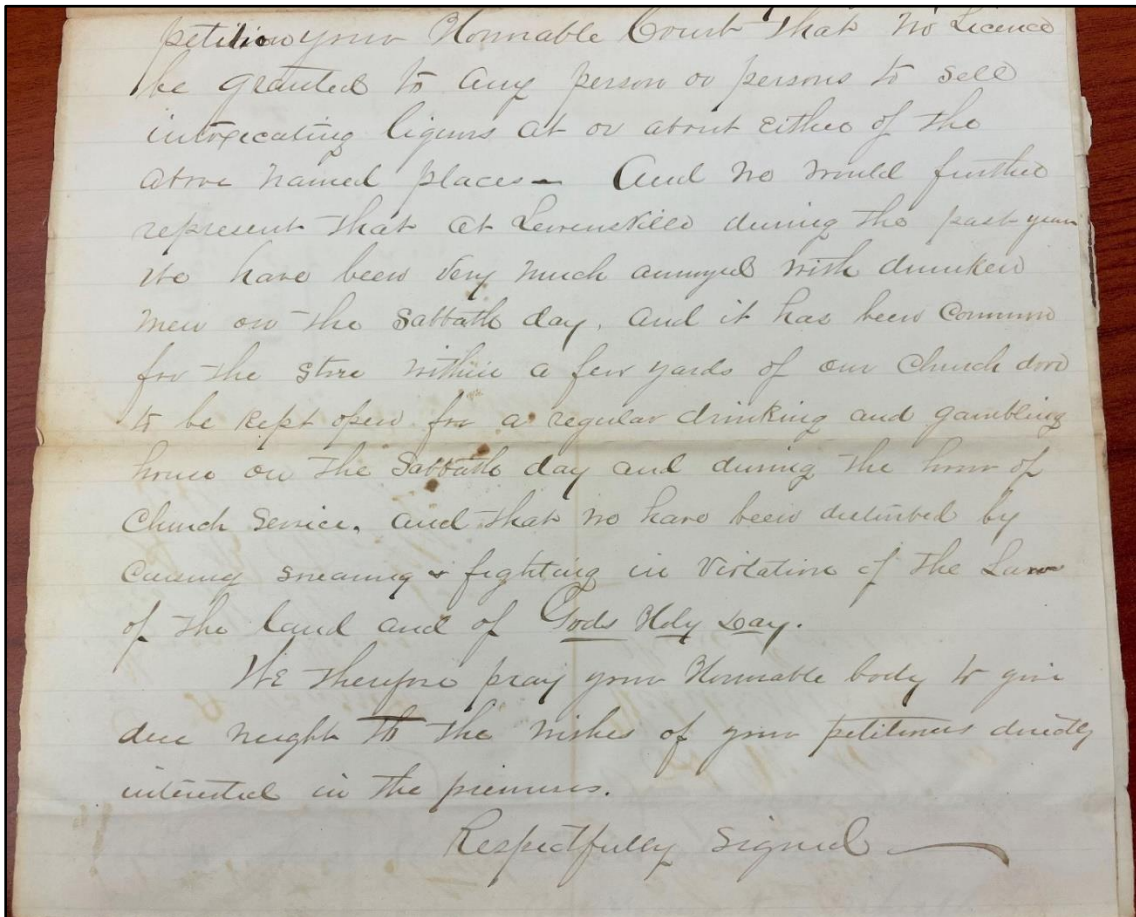 petition your Honorable Court that no Licence
be granted to any person or persons to sell
intoxicating liquors at or about either of the
above named places - And we would further
represent that at Lewinsville during the past year
we have been very much annoyed with drunken
men on the Sabbath day, and it has been common
for the store within a few yards of our Church door
to be kept open for a regular drinking and gambling
house on the Sabbath day and during the hour of
Church Service, and that we have been disturbed by
cursing swearing & fighting in violation of the Law
of the land and of Gods Holy Day.
We therefore pray your Honorable body to give
due weight to the wishes of your petitioners directly
interested in the premises.
Respectfully Signed